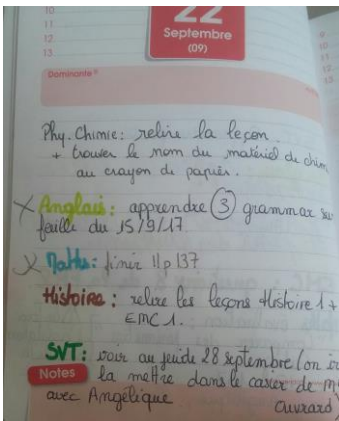 10
11
12
13
22
Septembre
(09)
9
10
11
12
13
Dominante
Phy. Chimie : relire la leçon
+ trouver le nom du matériel de chim
au crayon de papier.
X Anglais : apprendre (3) grammar su
feuille du 15/9/17.
X Maths : finir 11 p 137
Histoire : relire les leçons Histoire 1 +
EMC 1.
SVT : voir au jeudi 28 septembre (on
Notes
la mettre dans le casier de M
avec Angélique
Ouvrard